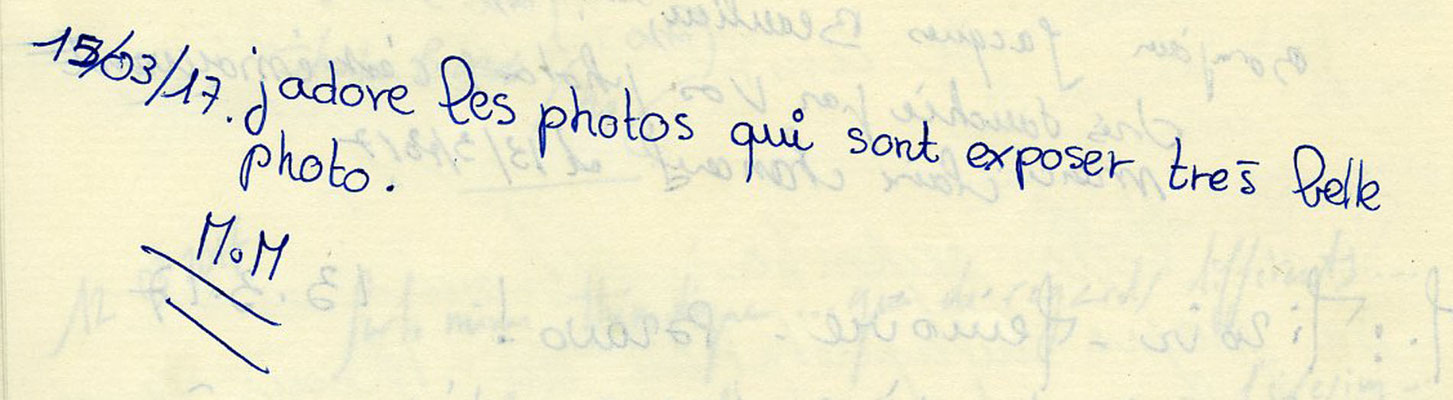 15/03/17. j'adore les photos qui sont exposer très belle
photo.
M.M